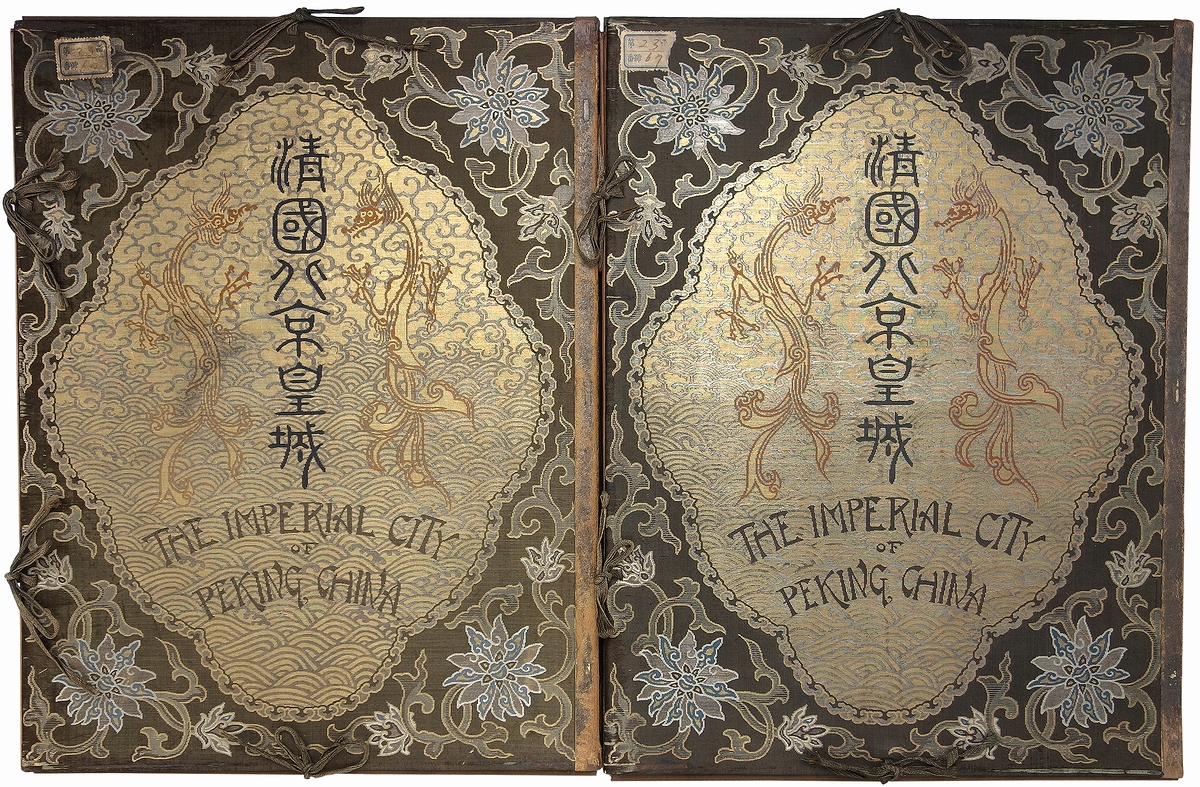 清國北京皇城
THE IMPERIAL CITY
OF
PEKING, CHINA
清國北京皇城
THE IMPERIAL CITY
OF
PEKING, CHINA